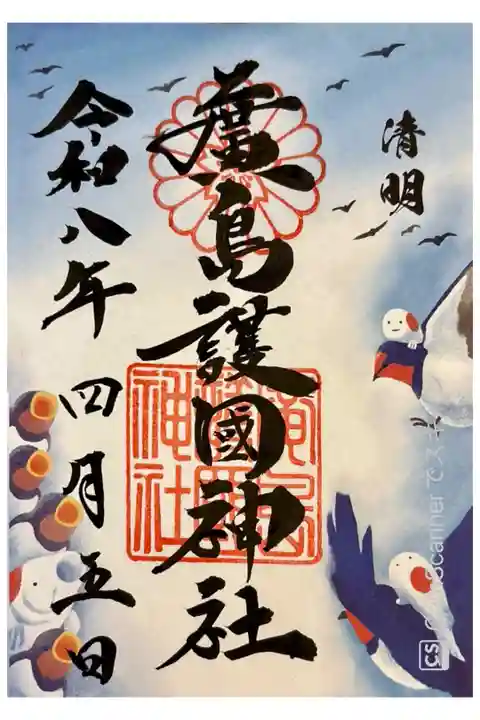 清明
廣島護國神社
廣島
護國
神社
令和八年四月五日
CS CamScanner でスキ